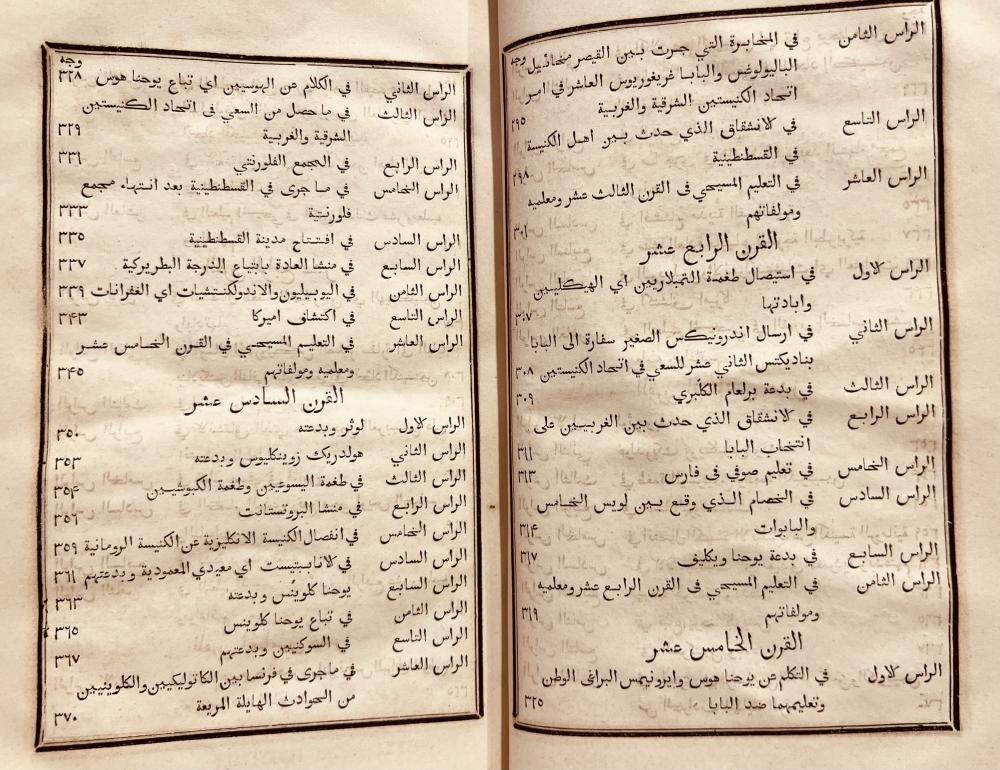 وجه
الراس الثامن في المخابرة التي جرت بين القيصر مخائيل
الباليولوغس والبابا غريغوريوس العاشر في امر
اتحاد الكنيستين الشرقية والغربية ٢٩٥
الراس التاسع في كلانشقاق الذي حدث بين اهل الكنيسة
في القسطنطينية ٢٩٨
الراس العاشر في التعليم المسيحي فى القرن الثالث عشر ومعلميه
ومولفاتهم ٣٠١
القرن الرابع عشر
الراس كلاول في استيصال طغمة التمپلاريين اي الهيكليين
وابادتها ٣٠٧
الراس الثاني في ارسال اندرونيكس الصغير سفارة الى البابا
بناديكتس الثاني عشر للسعي في اتحاد الكنيستين ٣٠٨
الراس الثالث في بدعة برلعام الكلبري ٣٠٩
الراس الرابع في كلانشقاق الذي حدث بين الغربيين على
انتخاب البابا ٣١١
الراس الخامس في تعليم صوفي فى فارس ٣١٣
الراس السادس في الخصام الذي وقع بين لويس الخامس
والبابوات ٣١٤
الراس السابع في بدعة يوحنا ويكليف ٣١٧
الراس الثامن في التعليم المسيحي فى القرن الرابع عشر ومعلميه
ومولفاتهم ٣١٩
القرن الخامس عشر
الراس كلاول في التكلم عن يوحنا هوس وايرونيمس البراغى الوطن
وتعليمهما ضد البابا ٣٢٥
وجه
الراس الثاني في الكلام عن الهوسيين اي تباع يوحنا هوس ٣٢٨
الراس الثالث في ما حصل من السعي فى اتحاد الكنيستين
الشرقية والغربية ٣٢٩
الراس الرابع في المجمع الفلورنتي ٣٣١
الراس الخامس في ما جرى في القسطنطينية بعد انتهاء مجمع
فلورنتية ٣٣٣
الراس السادس في افتتاح مدينة القسطنطينية ٣٣٥
الراس السابع في منشا العادة بابتياع الدرجة البطريركية ٣٣٧
الراس الثامن في اليوبيليون والاندولكنتشيات اي الغفرانات ٣٣٩
الراس التاسع في اكتشاف اميركا ٣٤٣
الراس العاشر في التعليم المسيحي في القرن الخامس عشر
ومعلميه ومولفاتهم ٣٤٥
القرن السادس عشر
الراس كلاول لوثر وبدعته ٣٥٠
الراس الثاني هولدريك زوينكليوس وبدعته ٣٥٣
الراس الثالث في طغمة اليسوعيين وطغمة الكبوشيين ٣٥٤
الراس الرابع في منشا البروتستانت ٣٥٦
الراس الخامس في انفصال الكنيسة الانكليزية عن الكنيسة الرومانية ٣٥٩
الراس السادس في كلاناببتيست اي معيدي المعمودية وبدعتهم ٣٦١
الراس السابع يوحنا كلوينس وبدعته ٣٦٣
الراس الثامن في تباع يوحنا كلوينس ٣٦٥
الراس التاسع في السوكنيين وبدعتهم ٣٦٧
الراس العاشر في ماجرى فى فرنسا بين الكاتوليكيين والكلوينيين
من الحوادث الهايلة المريعة ٣٧٠